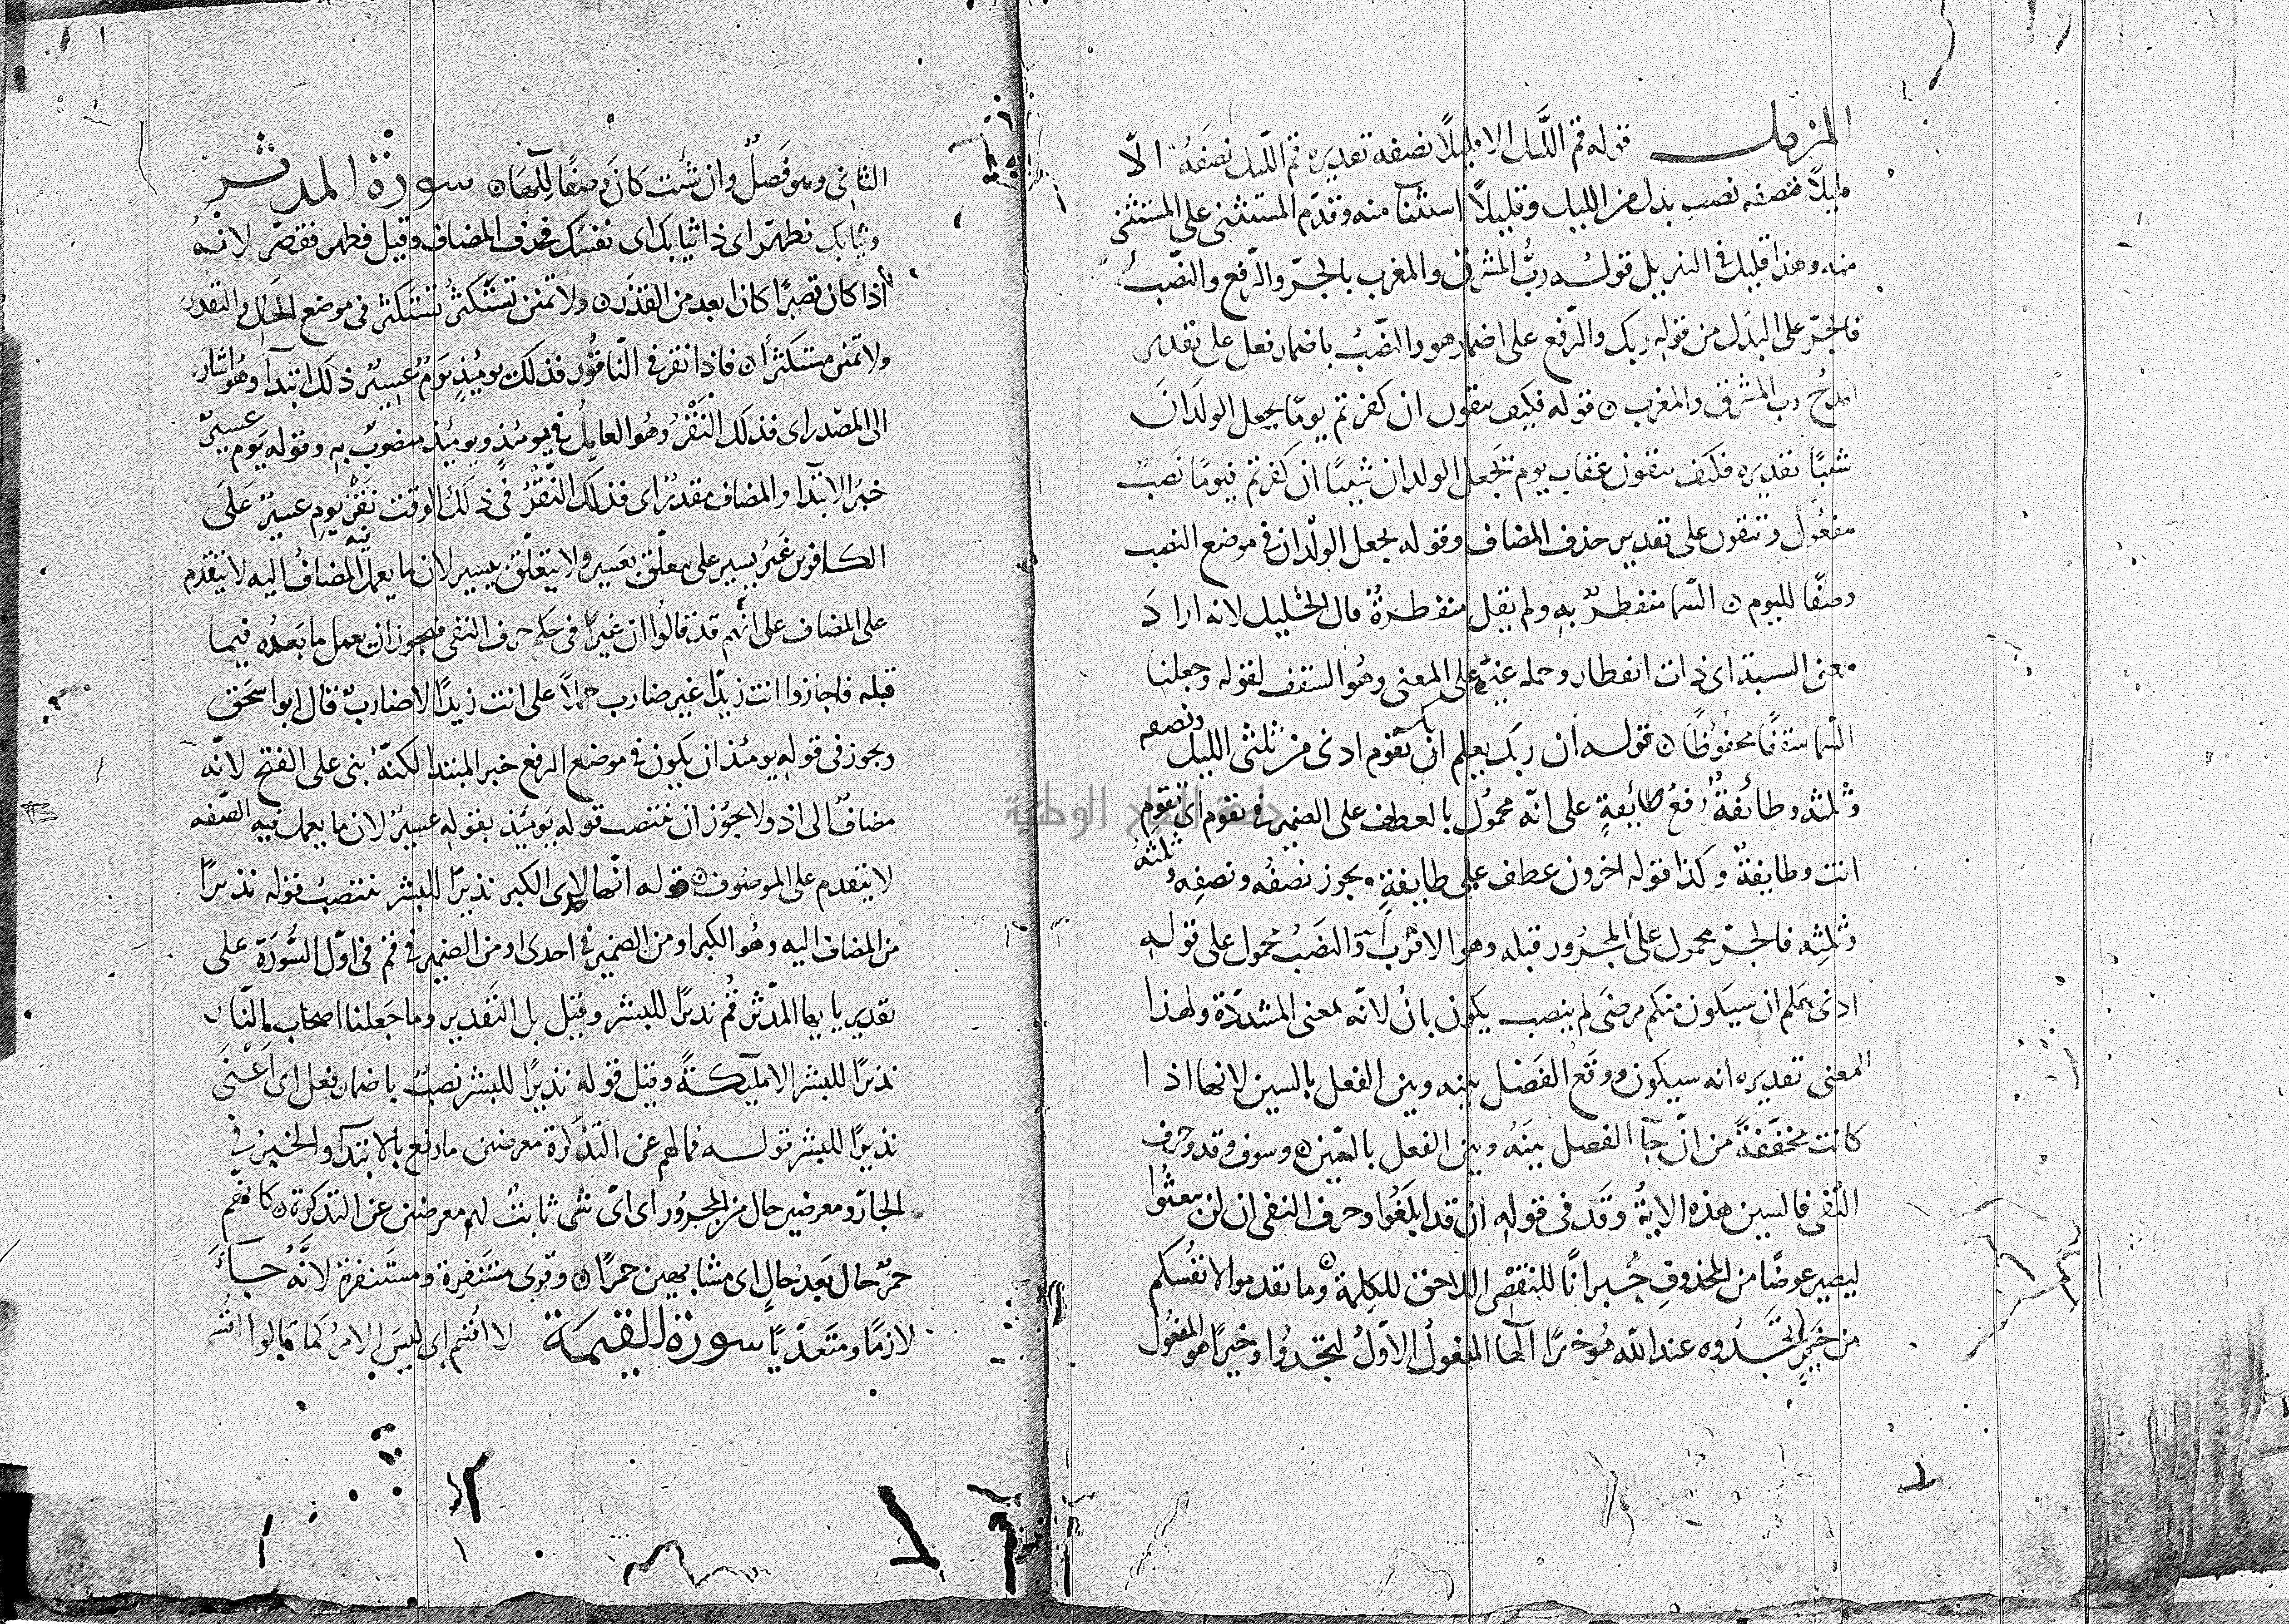 المزمل قوله قم الليل الا قليلاً نصفه تقديره قم الليل نصفَهُ الّا
قليلاً فنصفه نصب بدل من الليل وقليلاً استثنآ منه وقدّم المستثنى على المستثنى
منه وهذا قليل في التنزيل قوله ربُّ المشرق والمغرب بالجرّ والرّفع والنّصب
فالجرّ على البدَل من قوله ربك والرّفع على اضمار هو والنّصبُ باضمار فعل على تقدير
امدحُ رب المشرق والمغرب ه قوله فكيف تتقون ان كفرتم يومًا يجعل الولدَانَ
شيبًا تقديره فكيف تتقون عقاب يوم يجعل الولدان شيبًا ان كفرتم فيومًا نَصبُ
مفعُول وتتقون على تقدير حذف المضاف وقوله يجعل الولدان في موضع النصب
وصفًا لليوم ه السّما منفطرٌ به ولم يقل منفطرةٌ قال الخليل لانه ارادَ
معنى النسبة اى ذات انفطار وحمله غيرُه على المعنى وهُو السقف لقوله وجعلنا
السّما سقفًا محفوظًا ه قوله ان ربك يعلم انك تقوم ادنى من ثلثى الليل ونصفه
وثلثه وطائفةٌ رفعُ طايفةٍ على انّه محمُول بالعطف على الضمير في تقوم اى تقوم
انت وطايفةٌ وكذا قوله اخرون عطف على طايفةٍ ويجوز نصفُه ونصفِه وثلثَهُ
وثلثِه فالجرّ محمول على المجرُور قبله وهو الاقرب والنصَبُ محمول على قوله
ادنى علم ان سيكون منكم مرضَى لم ينصب يكون بانْ لانّه بمعنى المشدّدة ولهذا
المعنى تقديره انه سيكون ووقَع الفَصْل بينه وبين الفعل بالسين لانها اذا
كانت مخفّفةً من انّ جآ الفصل بينَهُ وبين الفعل بالسّين ه وسوف وقد وحرف
النّفى فالسين هذه الايةُ وقَد في قوله ان قد ابلغُوا وحرف النفى ان لن يبعثُوا
ليصير عوضًا من المحذوفِ جُبرانًا للنقصِ اللاحق للكلِمة ه وما تقدموا لانفُسكم
من خيرٍ تجدُوه عند اللّه هُو خيرًا الها المفعُول الاوّلُ لتجدُوا وخيرًا هو المفعُول
الثانى وهو فَصلٌ وان شئت كانَ وصفًا للهَا ه سورة المدثر
وثيابك فطهّر اى ذا ثيابك اى نفسَك فحذف المضاف وقيل فطهر فقصّر لانهُ
اذا كان قصيرًا كان ابعد من القذَر ه ولا تمنن تستَكثرُ تستَكثر في موضع الحَال والتقدير
ولا تمنن مستكثرًا ه فاذا نقر في النّاقُور فذلك يومَئِذٍ يَومٌ عسِيرٌ ذلك ابتدآ وهُو اشاره
الى المصْدر اى فذلك النقْرُ وهُو العاملُ في يومئذٍ ويومئِذٍ منصوبٌ به وقوله يَوم عسيرٌ
خبرُ الابتدا والمضاف مقدرٌ اى فذلك النّقْرُ في ذلك الوقت نَقْرُ يوم عسيرٌ عَلَى
الكافرين غيرُ يسير على معلّق بعَسير ولا يتعلّق بيسير لان ما يعمل فيه المضافُ اليه لا يتقدم
على المضاف على انّهم قد قالُوا ان غيرًا في حكم حرف النفى فيجوز ان يعمل ما بَعدُه فيما
قبله فاجازوا انت زيدًا غير ضارب حملاً على انت زيدًا لا ضاربٌ قال ابو اسحَق
ويجوز في قوله يومئذ ان يكون في موضع الرفع خبر المبتدا لكنّهُ بنى على الفتح لانّه
مضافٌ الى اذ ولا يجُوز ان ينتصب قوله يَومئذ بقوله عسيرٌ لان ما يعمل فيه الصّفه
لا يتقدم على الموصُوف ه قوله انّها لاحدى الكبر نذيرًا للبشر ينتصبُ قوله نذيرًا
من المضاف اليه وهُو الكبر او من الضمير في احدى او من الضمير في قم في اوّل السُّورَة على
تقدير يا ايها المدّثر قُم نذيرًا للبشر وقيل بل التقدير وما جَعلنا اصحاب النّار
نذيرًا للبشر الا ملئكةً وقيل قوله نذيرًا للبشر نصبٌ باضمار فعل اى اَعْنى
نذيرًا للبشر قوله فما لهم عن التذكرة معرضين ما رفع بالابتدآ والخبرُ في
الجارّ ومعرضين حال من المجرُور اى اىّ شى ثابتٌ لهم معرضين عن التذكرة ه كانّهم
حمرٌ حال بَعد حالٍ اى مشابهين حمرًا ه وقرى مستَنفِرة ومستَنفرة لانّهُ جآءَ
لازمًا ومتَعَدّيًا سورة القيمة لا اقسم اى ليسَ الامرُ كما قالوا اقسُم